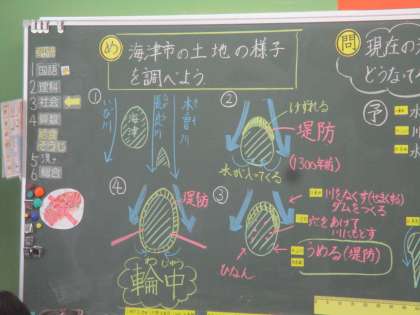 め
海津市の土地の様子
を調べよう
問
現在の
どうなて
予
水
1 国語
2 理科
3 社会
4 算数
給食
そうじ
5
6 総合
①
いび川
海津
長良川
木曽川
②
けずれる
堤防
(1300年前)
水が入ってくる
④
堤防
わじゅう
輪中
③
ひなん
川をなくす(せきとめる)
ダムをつくる
穴をあけて
川にもどす
うめる(堤防)